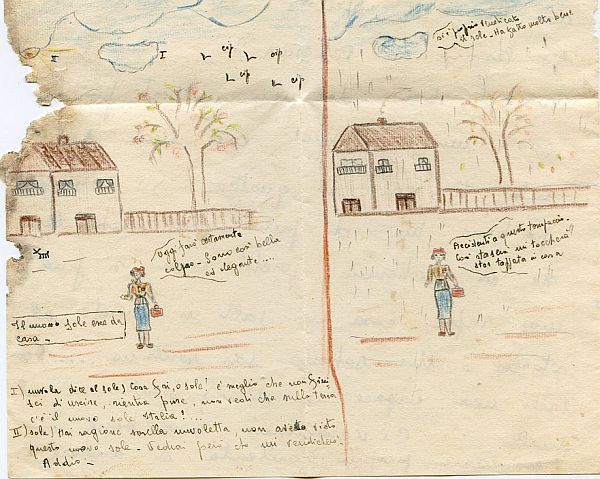 II
I
cip
cip
cip
cip
oggi farò certamente
colpo - Sono così bella
ed elegante ....
Il nuovo sole esce da
casa -
I) nuvola dice al sole) Cosa fai, o sole! è meglio che non
sci di uscire, rientra pure, non vedi che sulla terra
c'è il nuovo sole Italia! ...
II) sole) Hai ragione sorella nuvoletta, non avevo visto
questo nuovo sole - Vedrai però che mi vendicherò.
Addio -
si è proprio vendicato
il sole - Ha fatto molto bene
Accidenti a questo tempaccio -
Così stasera mi toccherà
star tappata in casa